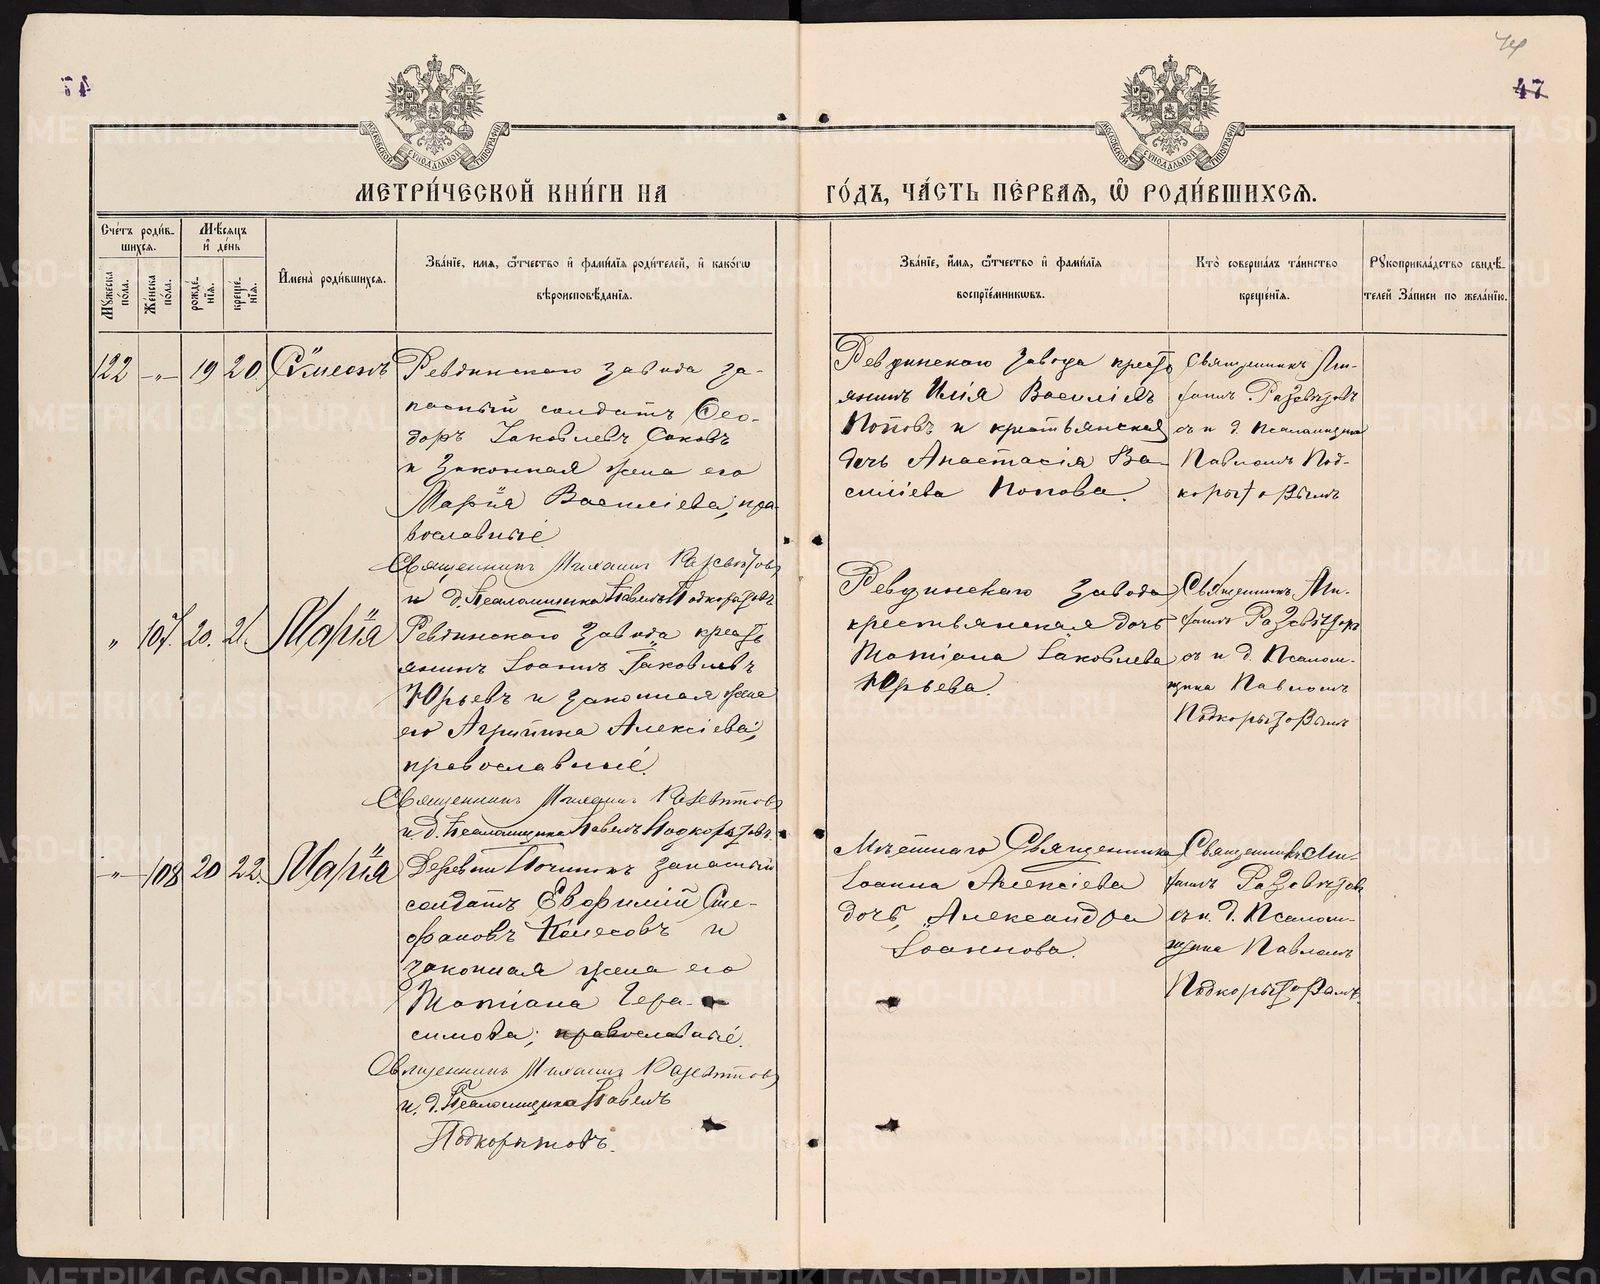 47
МЕТРИ́ЧЕСКОЙ КНИ́ГИ НА
ГО́ДЪ, ЧА́СТЬ ПЕ́РВАЯ, Ѡ҆ РОДИ́ВШИХСЯ.
МОСКОВСКОЙ СѴНОДАЛЬНОЙ ТИПОГРАФІИ
МОСКОВСКОЙ СѴНОДАЛЬНОЙ ТИПОГРАФІИ
Сче́тъ роди́в-
шихся.
Му́жеска пола.
Же́нска пола.
Мѣ́сяцъ и де́нь
рожде́нїя.
креще́нїя.
И҆мена̀ роди́вшихся.
Зва́нїе, имя, ѻ҆́тчество и҆ фами́лїя роди́телей, и҆ како́гѡ
вѣроисповѣ́данїя.
Зва́нїе, и҆́мя, ѻ҆́тчество и҆ фами́лїя
воспрїе́мниковъ.
Кто̀ соверша́лъ та́инство
креще́нїя.
Рꙋкоприкла́дство свидѣ́-
телей За́писи по жела́нїю.
122 —„— 19 20 Сѵмеонъ
Ревдинскаго завода за-
пасный солдатъ Ѳео-
доръ Іаковлевъ Соковъ
и законная жена его
Марія Василіева; пра-
вославные
Священникъ Михаилъ Разсвѣтовъ
и д. Псаломщика Павелъ Подкорытовъ
Ревдинскаго завода кресть
янинъ Илія Василіевъ
Поповъ и крестьянская
дочь Анастасія Ва-
силіева Попова.
Священникъ Ми-
хаилъ Разсвѣтовъ
съ и. д. Псаломщика
Павломъ Под-
корытовымъ
„ 107. 20. 21. Марія
Ревдинскаго завода кресть
янинъ Іоаннъ Іаковлевъ
Юрьевъ и законная жена
его Агрипина Алексіева,
православные.
Священникъ Михаилъ Разсвѣтовъ
и. д. Псаломщика Павелъ Подкорытовъ
Ревдинскаго завода
крестьянская дочь
Татіана Іаковлева
Юрьева.
Священникъ Ми-
хаилъ Разсвѣтовъ
съ и. д. Псалом-
щика Павломъ
Подкорытовымъ
—„— 108 20 22. Марія
Деревни Починокъ запасный
солдатъ Евфимій Сте-
фановъ Колесовъ и
законная жена его
Татіана Гера-
симова; православные.
Священникъ Михаилъ Разсвѣтовъ
и. д. Псаломщика Павелъ
Подкорытовъ.
Мѣстнаго Священника
Іоанна Алексіева
дочь, Александра
Іоаннова.
Священникъ Ми-
хаилъ Разсвѣтовъ
съ и. д. Псалом-
щика Павломъ
Подкорытовымъ.